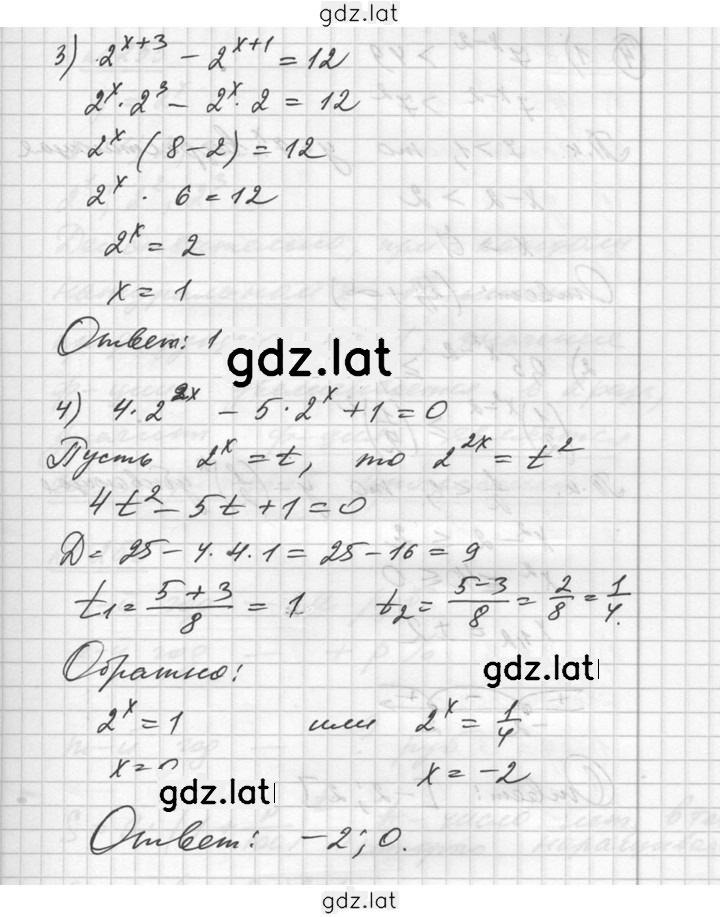 gdz.lat
3) 2^{x+3} − 2^{x+1} = 12
2^x · 2^3 − 2^x · 2 = 12
2^x (8−2) = 12
2^x · 6 = 12
2^x = 2
x = 1
Ответ: 1
gdz.lat
4) 4 · 2^{2x} − 5 · 2^x + 1 = 0
Пусть 2^x = t, то 2^{2x} = t^2
4t^2 − 5t + 1 = 0
D = 25 − 4 · 4 · 1 = 25 − 16 = 9
t_1 = \frac{5+3}{8} = 1 t_2 = \frac{5−3}{8} = \frac{2}{8} = \frac{1}{4}.
Обратно:
gdz.lat
2^x = 1 или 2^x = \frac{1}{4}
x = 0 x = −2
gdz.lat
Ответ: −2; 0.
gdz.lat